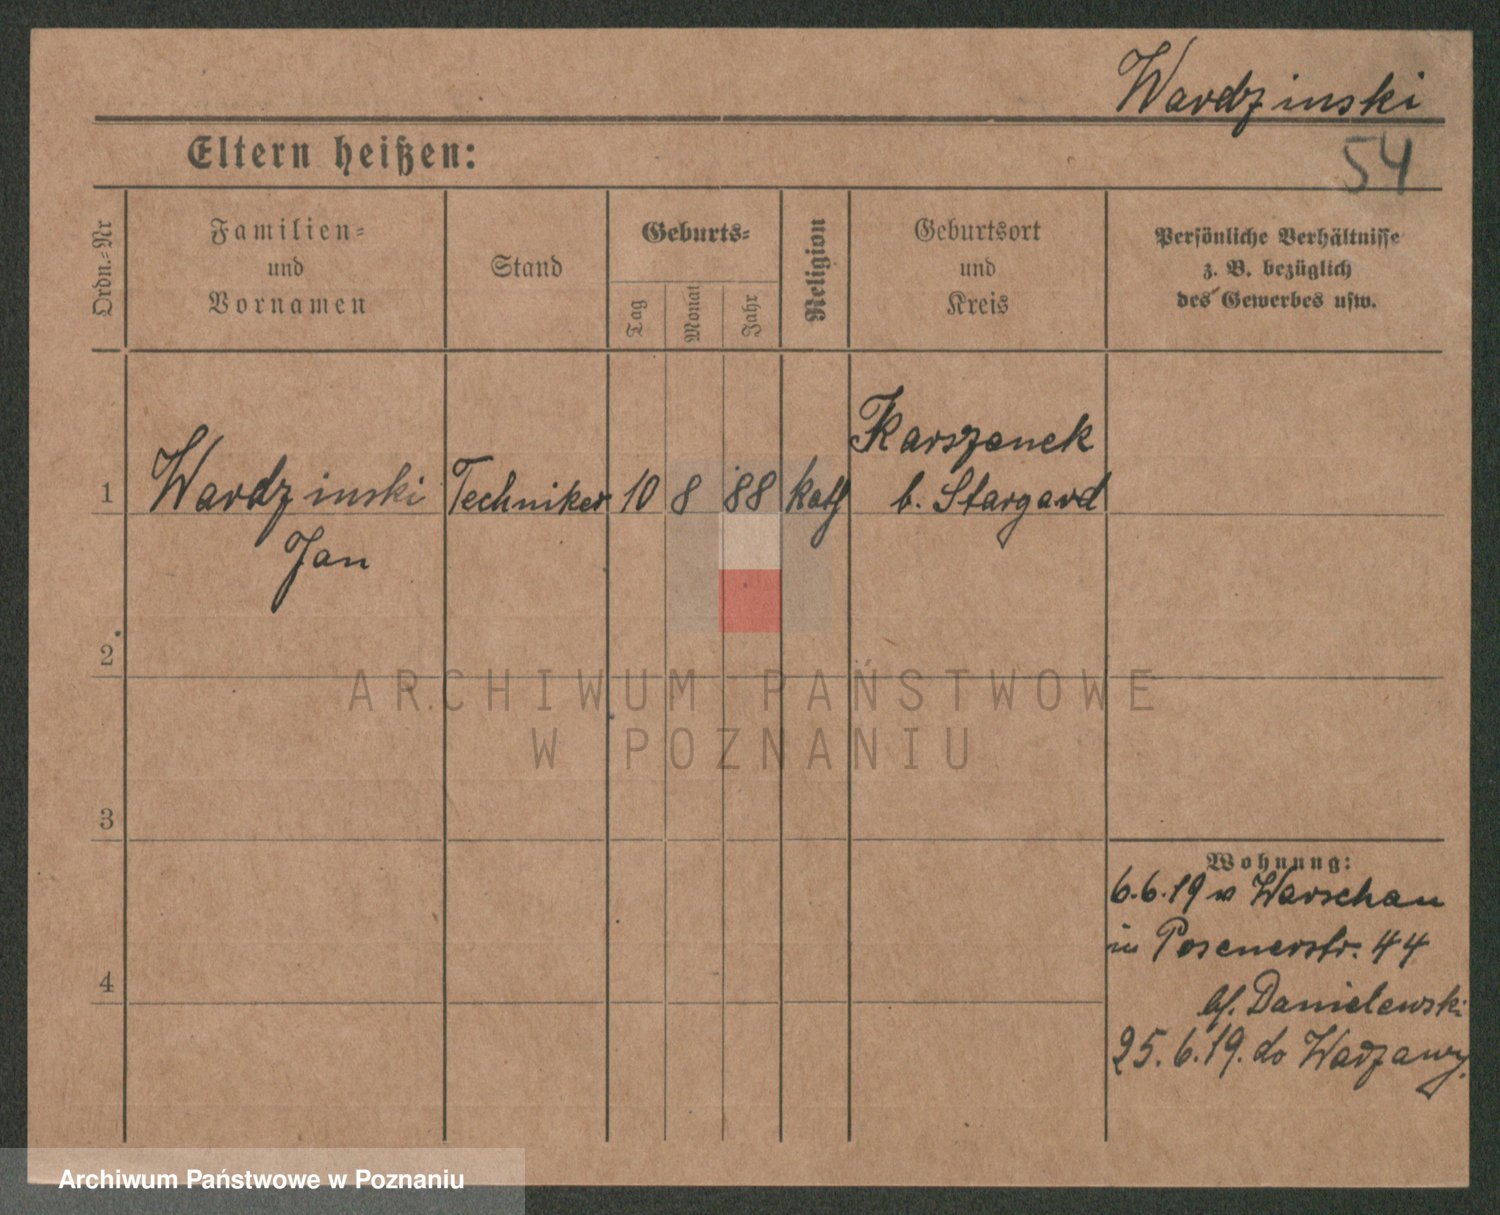 Wardzinski
54
Eltern heißen:
Ordn.-Nr
Familien-
und
Vornamen
Stand
Geburts-
Tag
Monat
Jahr
Religion
Geburtsort
und
Kreis
Persönliche Verhältnisse
z. B. bezüglich
des Gewerbes usw.
1 Wardzinski Techniker 10 8 88 kath
Karszanek
b. Stargard
Jan
2
3
4
ARCHIWUM PAŃSTWOWE
W POZNANIU
Wohnung:
6.6.19 v Warschau
in Posenerstr. 44
bf. Danielewski
25.6.19. do Warzawy.
Archiwum Państwowe w Poznaniu